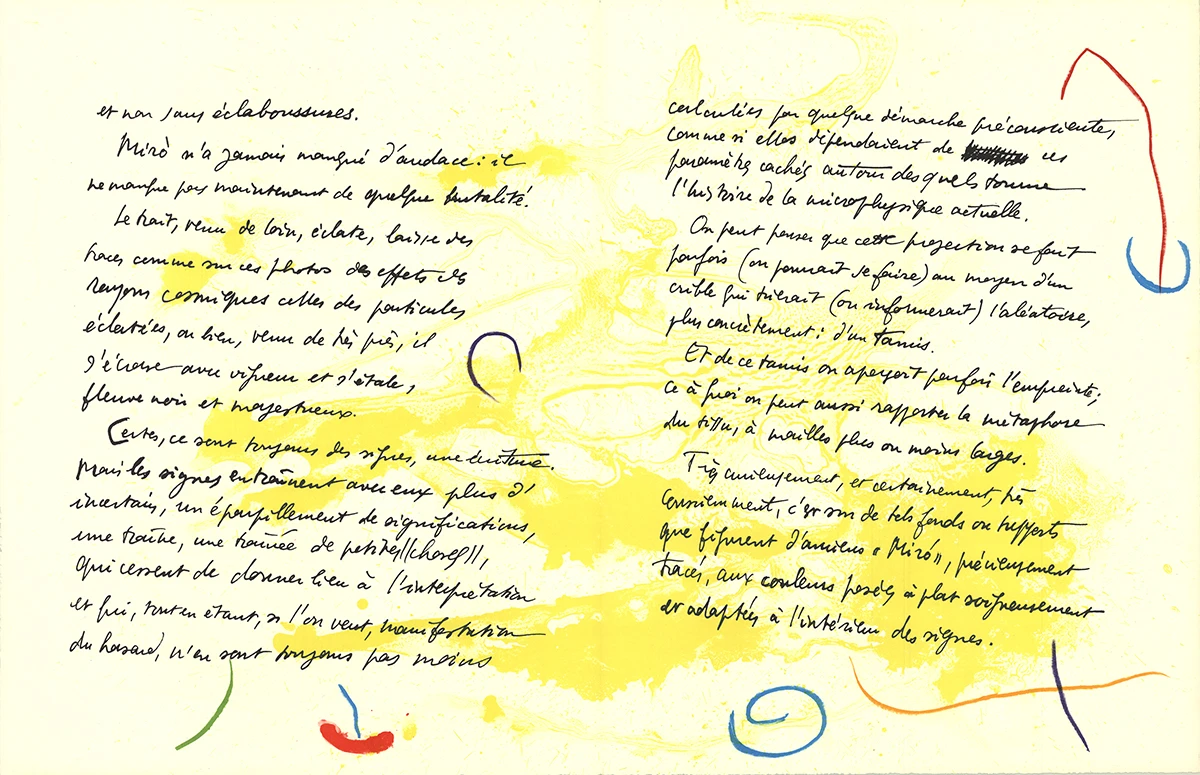 et non sans éclaboussures.
Mirò n'a jamais manqué d'audace : il
ne manque pas maintenant de quelque brutalité.
Le trait, venu de loin, éclate, laisse des
traces comme sur ces photos des effets des
rayons cosmiques celles des particules
éclatées, ou bien, venu de très près, il
s'écrase avec vigueur et s'étale,
fleuve noir et majestueux.
Certes, ce sont toujours des signes, une écriture.
Mais les signes entraînent avec eux plus d'
incertain, un éparpillement de significations,
une traîne, une traînée de petites ||choses||,
qui cessent de donner lieu à l'interprétation
et qui, tout en étant, si l'on veut, manifestation
du hasard, n'en sont toujours pas moins
calculées par quelque démarche préconsciente,
comme si elles dépendaient de ces
paramètres cachés autour desquels tourne
l'histoire de la microphysique actuelle.
On peut penser que cette projection se fait
parfois (ou pourrait se faire) au moyen d'un
crible qui trierait (ou informerait) l'aléatoire,
plus concrètement : d'un tamis.
Et de ce tamis on aperçoit parfois l'empreinte ;
ce à quoi on peut aussi rapporter la métaphore
du tissu, à mailles plus ou moins larges.
Très curieusement, et certainement, très
consciemment, c'est sur de tels fonds ou supports
que figurent d'anciens « Miró », précieusement
tracés, aux couleurs posées à plat soigneusement
et adaptées à l'intérieur des signes.